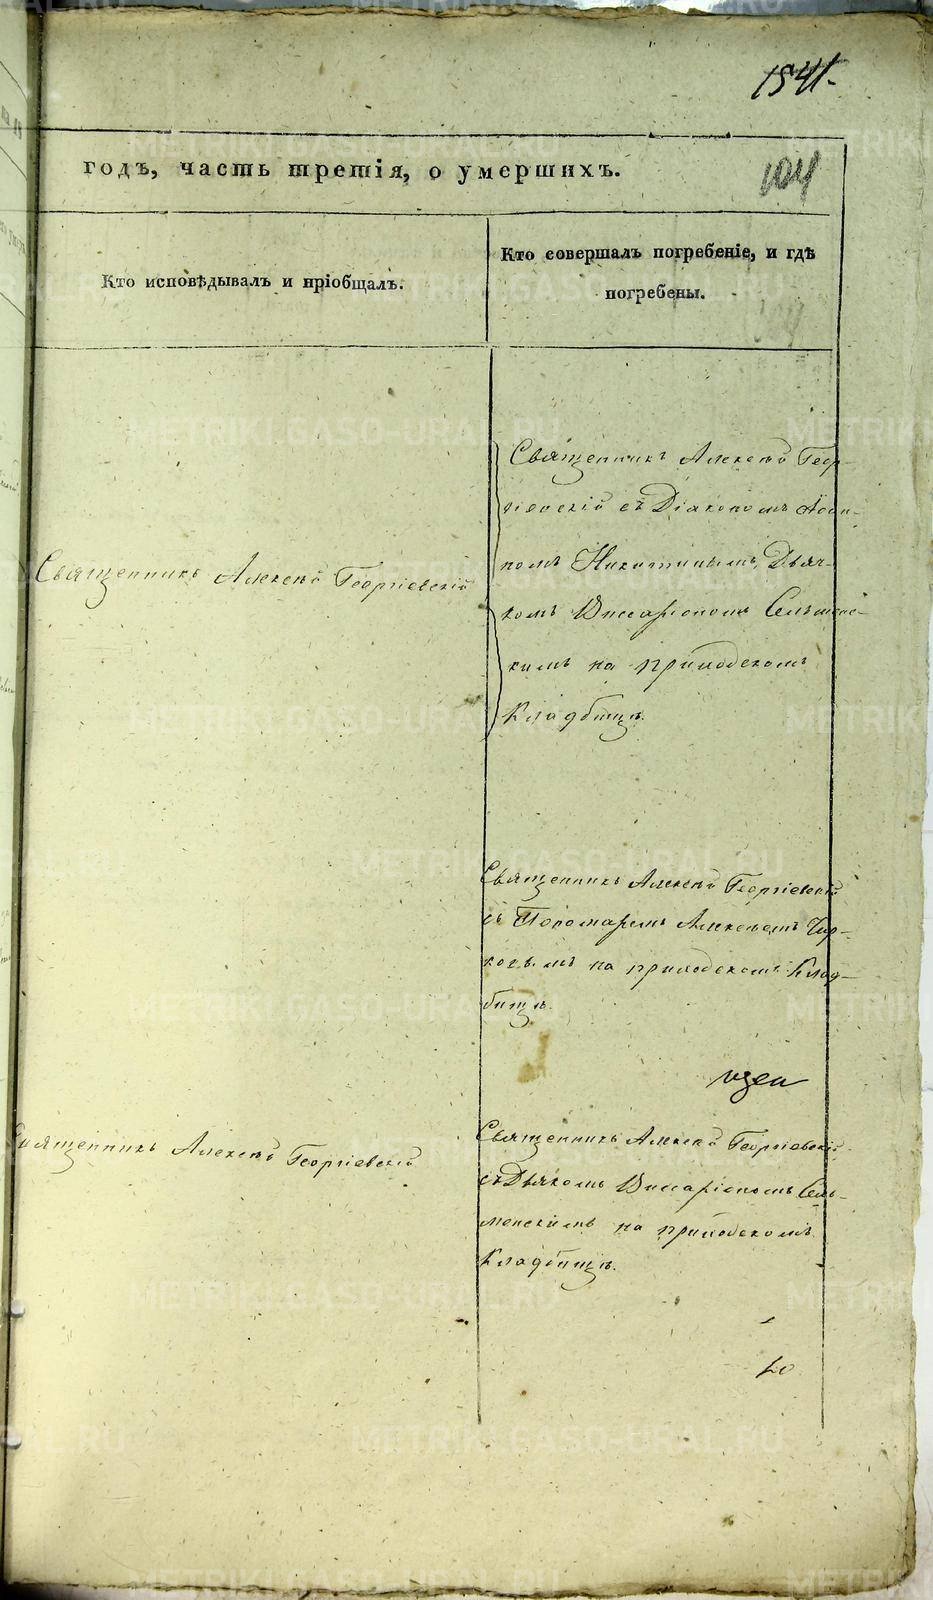 1541.
годъ, часть третія, о умершихъ.
104
Кто исповѣдывалъ и пріобщалъ.
Кто совершалъ погребеніе, и гдѣ
погребены.
Священникъ Алексѣй Геор-
гіевскій съ Діакономъ
помъ Никитинымъ, Дьяч-
комъ Виссаріономъ Сельменс-
кимъ на приходскомъ
Кладбищѣ.
Священникъ Алексѣй Георгіевскій
Священникъ Алексѣй Георгіевскій
съ Пономаремъ Алексѣемъ Чир-
ковымъ на приходскомъ Клад-
бищѣ.
Священникъ Алексѣй Георгіевскій
Священникъ Алексѣй Георгіевскій
съ Дьякомъ Виссаріономъ Сель-
менскимъ на приходскомъ
Кладбищѣ.
METRIKI.GASO-URAL.RU